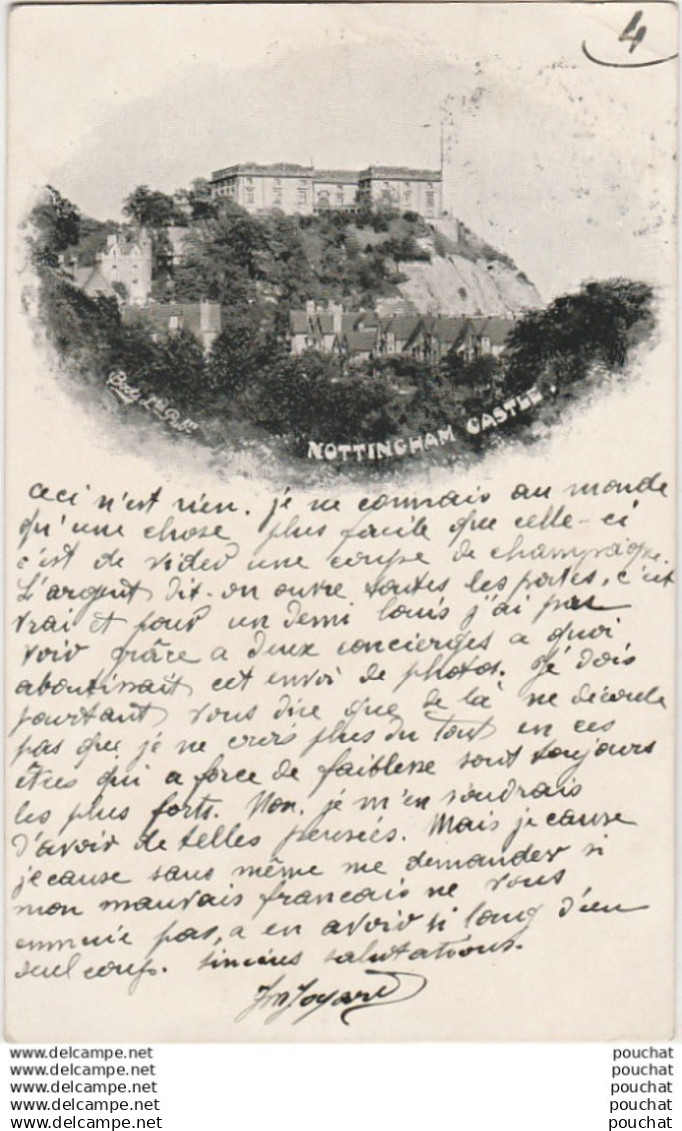 4
NOTTINGHAM CASTLE.
ceci n'est rien. je ne connais au monde
qu'une chose plus facile que celle-ci
c'est de vider une coupe de champagne.
L'argent dit-on ouvre toutes les portes, c'est
vrai et pour un demi louis j'ai pu
voir grâce a deux concierges a quoi
aboutirait cet envoi de photos. Je dois
pourtant vous dire que de là ne découle
pas que je ne crois plus du tout en ces
êtres qui a force de faiblesse sont toujours
les plus forts. Non, je m'en voudrais
d'avoir de telles pensées. Mais je cause
je cause sans même me demander si
mon mauvais francais ne vous
ennuie pas, a en avoir si long d'un
seul coup. Sincères salutations.
www.delcampe.net
www.delcampe.net
www.delcampe.net
www.delcampe.net
www.delcampe.net
pouchat
pouchat
pouchat
pouchat
pouchat